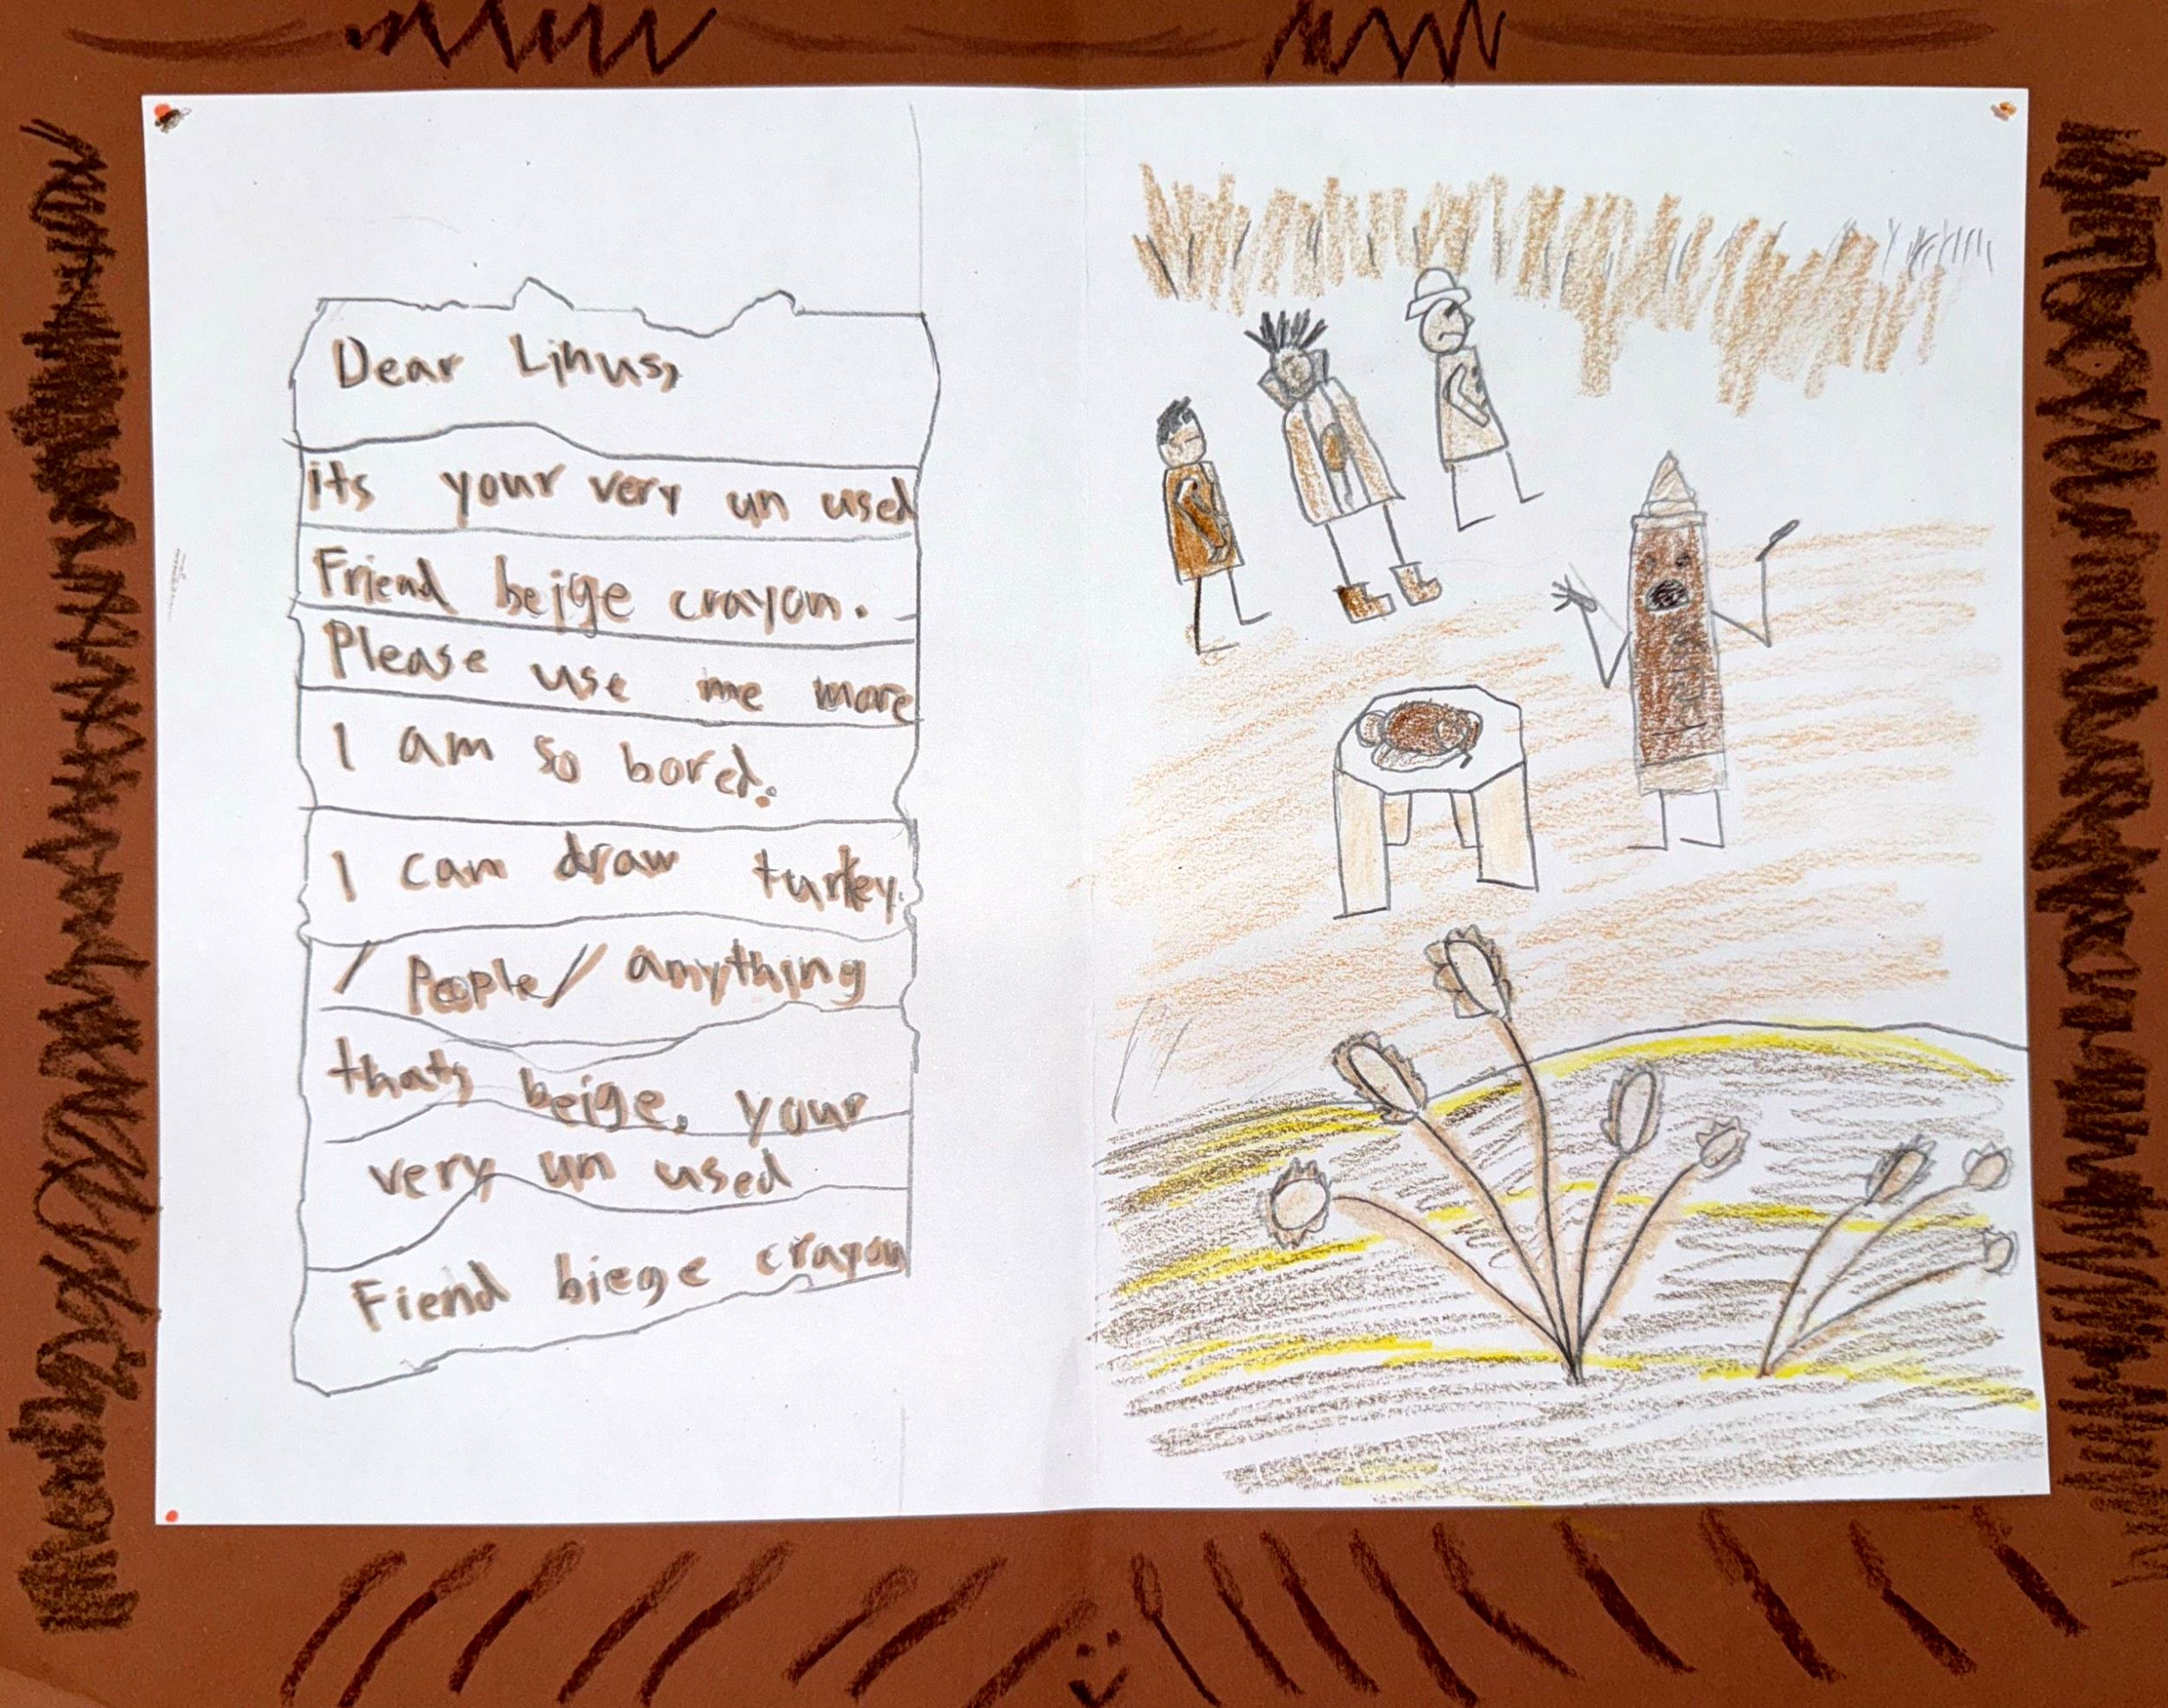 Dear Linus,
its your very un used
Friend beige crayon.
Please use me more
I am so bored.
I can draw turkey.
/ People / anything
thats beige. your
very un used
Fiend biege crayon